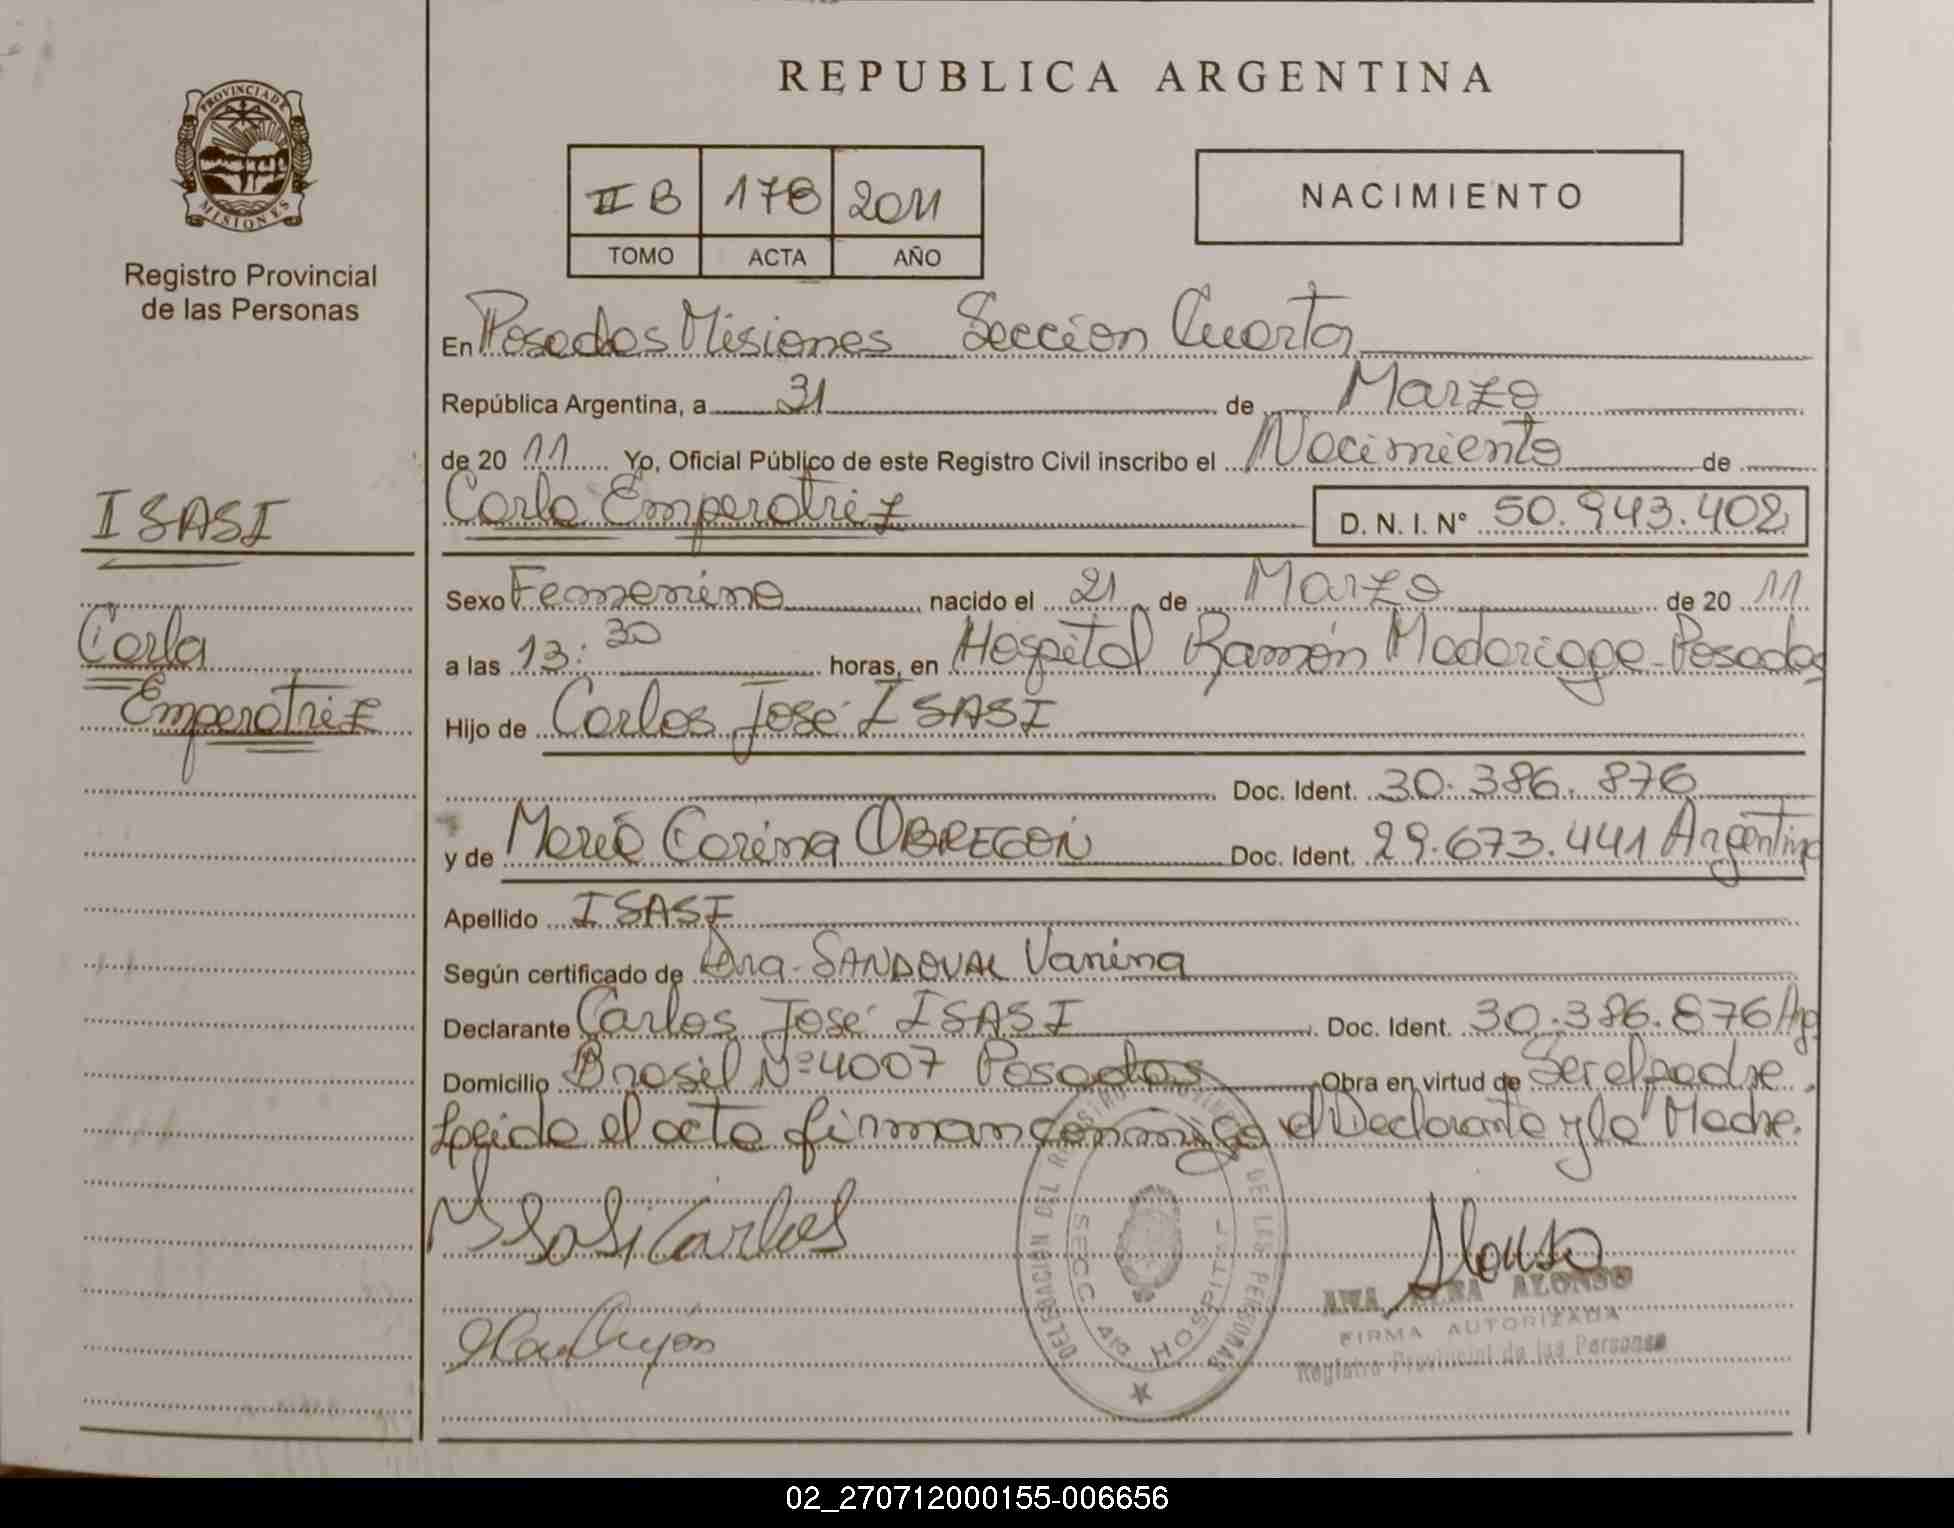 PROVINCIA DE
MISIONES
Registro Provincial
de las Personas
ISASI
Carla
Emperatriz
REPUBLICA ARGENTINA
II B 178 2011
TOMO ACTA AÑO
NACIMIENTO
En Posadas Misiones Sección Cuarta
República Argentina, a 31 de Marzo
de 20 11 Yo, Oficial Público de este Registro Civil inscribo el Nacimiento de
Carla Emperatriz D. N. I. N° 50.943.402
Sexo Femenino nacido el 21 de Marzo de 20 11
a las 13:30 horas, en Hospital Ramón Madariaga-Posadas
Hijo de Carlos José ISASI
Doc. Ident. 30.386.876
y de María Carina OBREGÓN Doc. Ident. 29.673.441 Argentina
Apellido ISASI
Según certificado de Dra. SANDOVAL Vanina
Declarante Carlos José ISASI Doc. Ident. 30.386.876 Ag
Domicilio Brasil Nº 4007 Posadas Obra en virtud de Ser el padre.
Legido el acta firman conmigo el Declarante y la Madre.
Isasi Carlos
Alonso
ANA ALBA ALONSO
FIRMA AUTORIZADA
Registro Provincial de las Personas
DELEGACION DEL REGISTRO DE LAS PERSONAS
SECC 4ta HOSPITAL
02_270712000155-006656